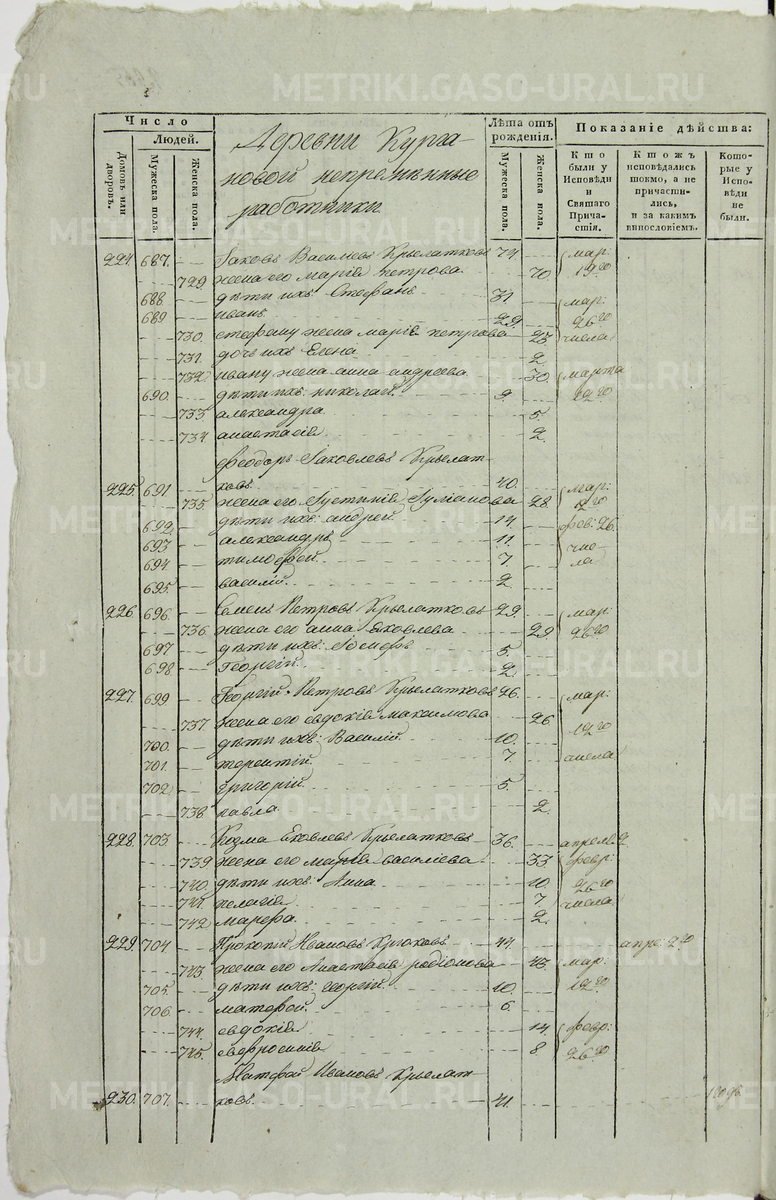 METRIKI.GASO-URAL.RU
Число
Людей.
Домовъ или дворовъ.
Мужеска пола.
Женска пола.
Деревни Курга-
новой непремѣнные
работники
Лѣта отъ рожденія.
Мужеска пола.
Женска пола.
Показаніе дѣйства:
Кто были у Исповѣди и Святаго Причастія.
Кто жъ исповѣдались токмо, а не причастились, и за какимъ винословіемъ.
Которые у Исповѣди не были.
224 687. Іаковъ Василіевъ Крылатковъ 74 мар:
729 жена его Марія Петрова 70 19го
688 дѣти ихъ Стефанъ 31 мар:
689 иванъ 29. 26го
730. стефану жена марія петрова 23 числа
731. дочь ихъ Елена 2
732. ивану жена анна андреева 30 марта
690. дѣти ихъ: николай 9 19го
733 александра 5.
734 анастасія 2.
Феодоръ Іаковлевъ Крылат-
225. 691 ковъ 40. мар:
735. жена его Іустинія Іуліанова 28
692. дѣти ихъ: андрей 14 фев: 26.
693 александръ 11. чис-
694 тимофей 7. ла
695. василій 2
226. 696. Семенъ Петровъ Крылатковъ 29. мар:
736. жена его анна Яковлева 29 26го
697 дѣти ихъ: Іосифъ 5.
698 Георгій 2.
227. 699 Георгій Петровъ Крылатковъ 26. мар:
737. жена его евдокія максимова 26 19го
700. дѣти ихъ: Василій 10.
701. терентій 7 числа
702. григорій 5.
738. павла 2
228. 703 Козма Яковлевъ Крылатковъ 36. апреля 2
739 жена его марія василіева 33 февр:
740. дѣти ихъ: Анна 10. 26го
741. пелагія 7 числа
742 марфа 2
229. 704. Прокопій Ивановъ Крюковъ 44. апре: 2го
743. жена его Анастасія родіонова 43. мар:
705. дѣти ихъ: георгій 10. 19го
706. матфей 6.
744. евдокія 14 февр:
745. евфросинія 8 26го
Матфей Ивановъ Крылат-
230. 707. ковъ 41.